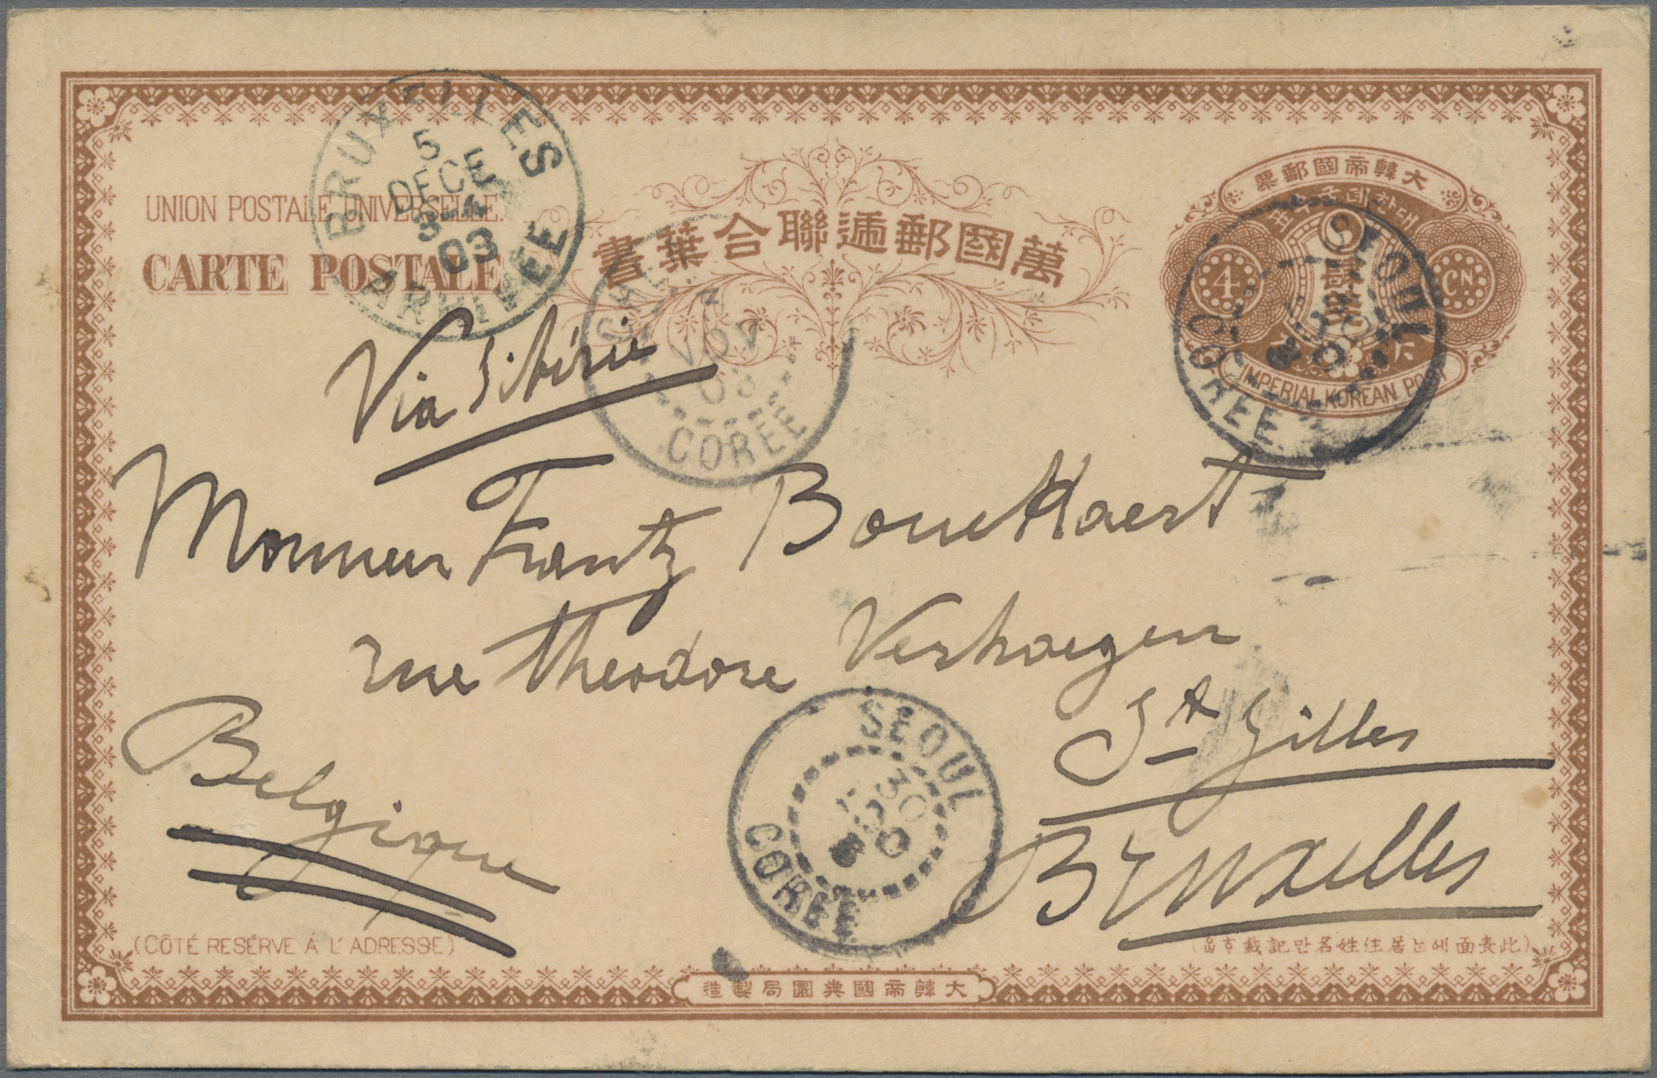 UNION POSTALE UNIVERSELLE.
CARTE POSTALE
萬國郵遞聯合葉書
大韓帝國郵票
대한뎨국우표
4
CN
IMPERIAL KOREAN POST
BRUXELLES
5
DECE
03
ARRIVÉE
NOV
03
CORÉE
SEOUL
CORÉE
Via Sibérie
Monsieur Frantz Bouckaert
rue Theodore Verhaegen
St Gilles
Bruxelles
Belgique
SEOUL
30
CORÉE
(CÔTÉ RESÉRVE À L'ADRESSE)
(此表面에ᄂᆞᆫ居住姓名만記載ᄒᆞᆷ)
大韓帝國典圜局製造